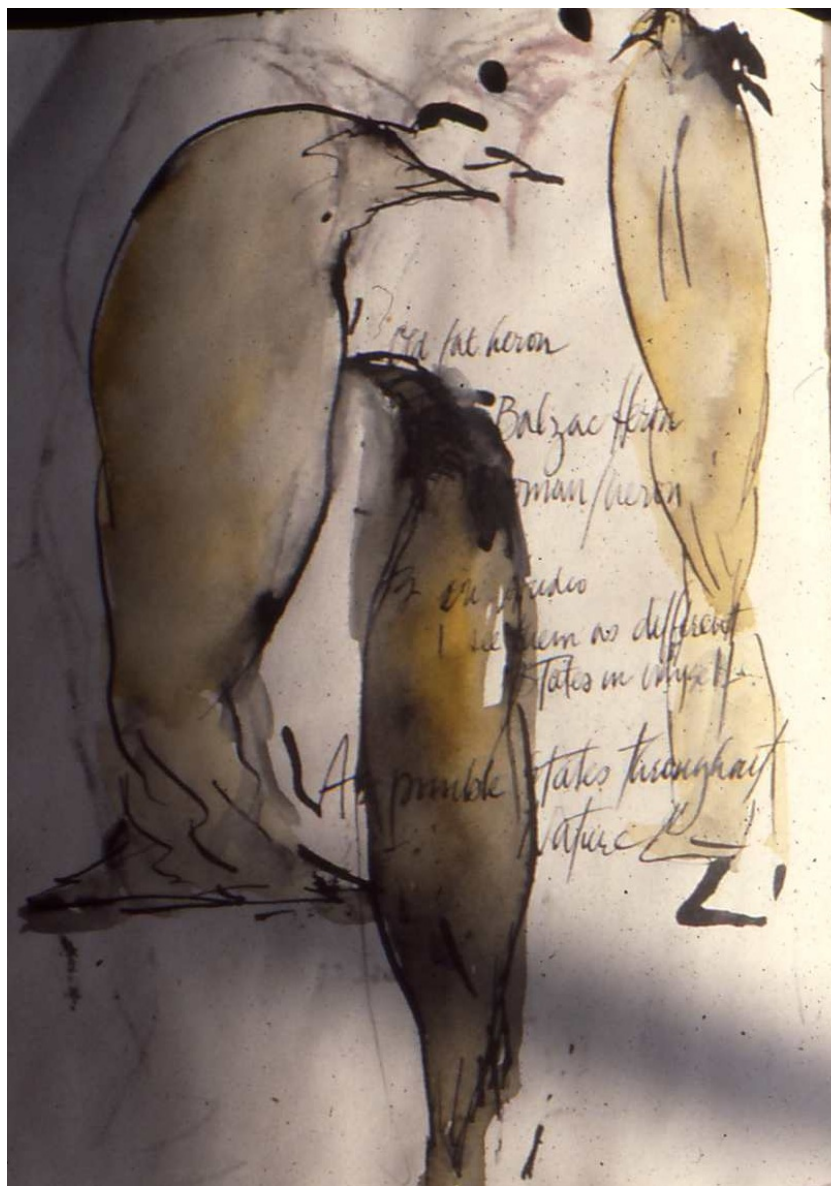 Old fat heron
Balzac Heron
oman/heron
I see them as different
States in myself.
As possible States throughout
Nature